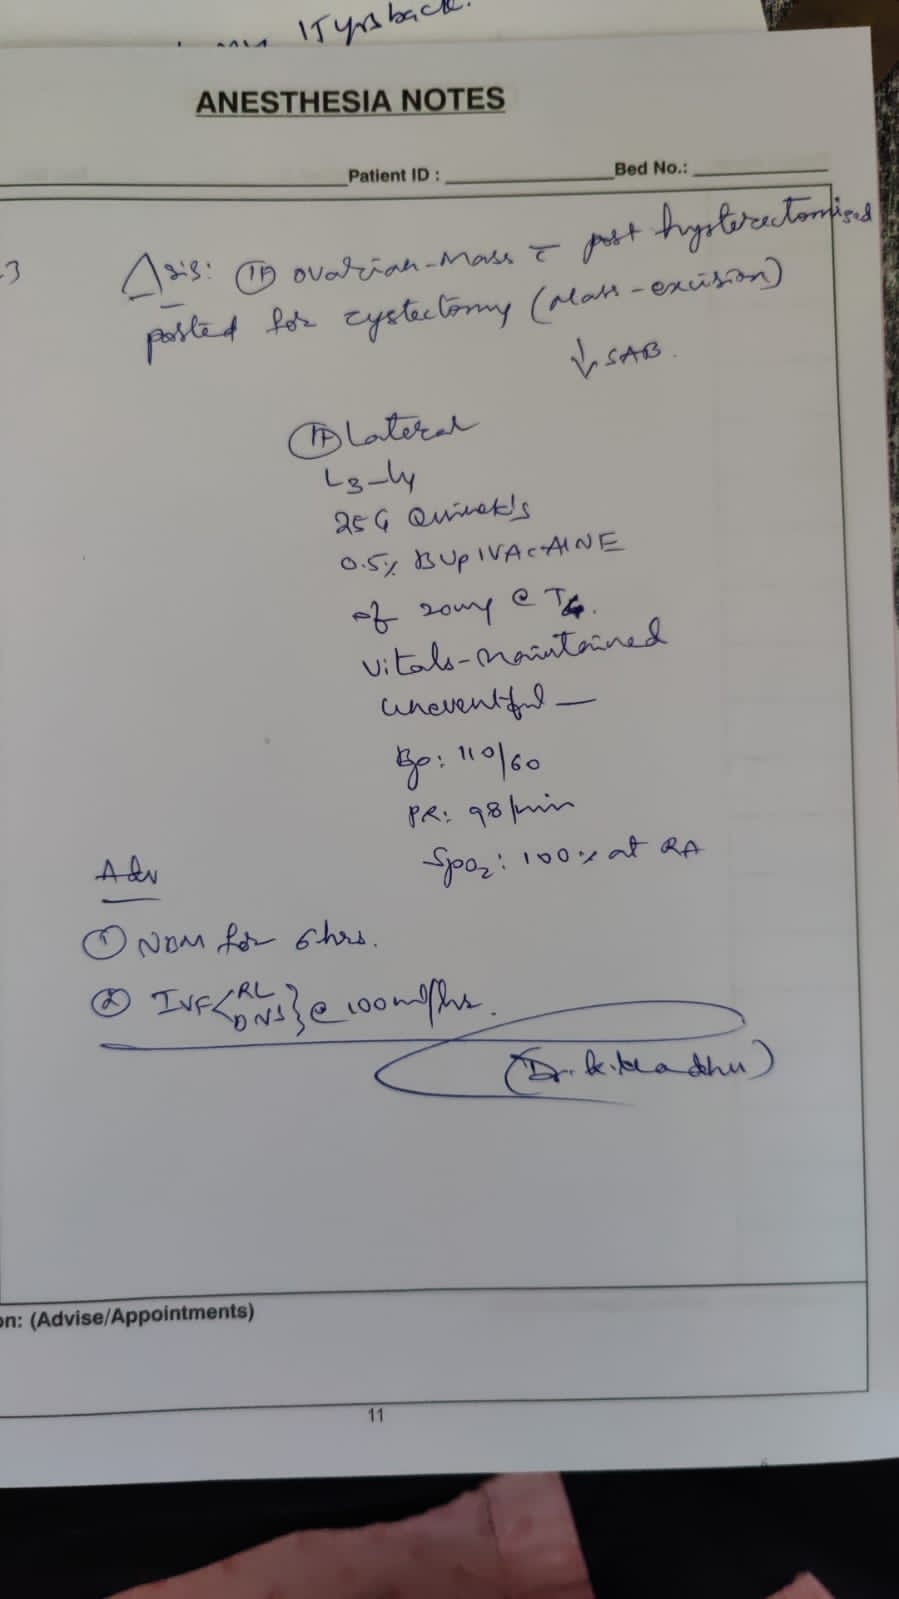 17 yrs back.
ANESTHESIA NOTES
Patient ID : Bed No.:
-3
Δsis: ovarian-Mass c̄ post hysterectomised
posted for cystectomy (Mass-excision)
↓ SAB.
Lateral
L3-L4
25G
0.5% BUPIVACAINE
of 20mg @ T6.
Vitals-Maintained
Uneventful —
Bp: 110/60
PR: 98/min
SpO2: 100% at RA
Adv
① NBM for 6 hrs.
② IVF<RL DNS} @ 100ml/hr.
(Dr. K. Madhu)
on: (Advise/Appointments)
11